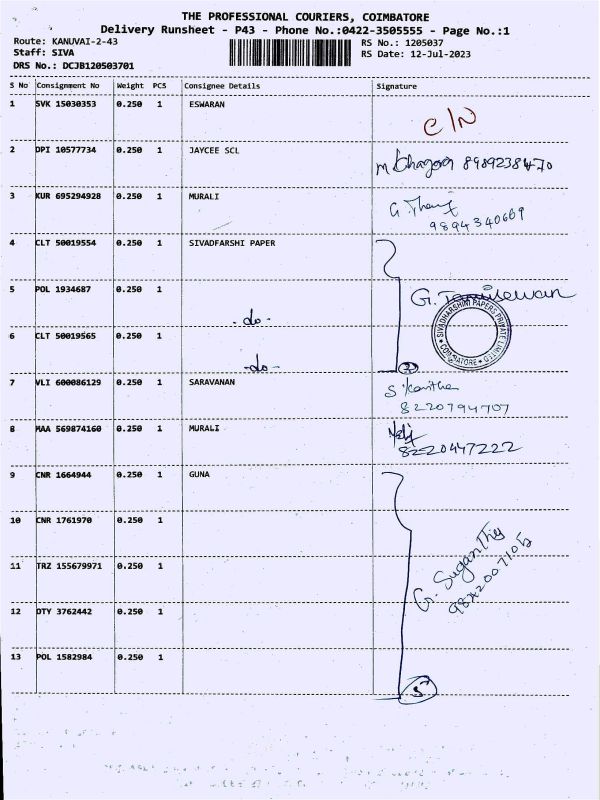 THE PROFESSIONAL COURIERS, COIMBATORE
Delivery Runsheet - P43 - Phone No.:0422-3505555 - Page No.:1
Route: KANUVAI-2-43 RS No.: 1205037
Staff: SIVA RS Date: 12-Jul-2023
DRS No.: DCJB120503701
S No Consignment No Weight PCS Consignee Details Signature
1 SVK 15030353 0.250 1 ESWARAN C/N
2 DPI 10577734 0.250 1 JAYCEE SCL 8989238470
3 KUR 695294928 0.250 1 MURALI
9894340669
4 CLT 50019554 0.250 1 SIVADFARSHI PAPER
5 POL 1934687 0.250 1
-do-
SIVADHARSHINI PAPERS PRIVATE LIMITED
COIMBATORE
6 CLT 50019565 0.250 1
-do- 3
7 VLI 600086129 0.250 1 SARAVANAN
8220794707
8 MAA 569874160 0.250 1 MURALI
8220447222
9 CNR 1664944 0.250 1 GUNA
10 CNR 1761970 0.250 1
11 TRZ 155679971 0.250 1 G. Suganthi
12 DTY 3762442 0.250 1
13 POL 1582984 0.250 1
5